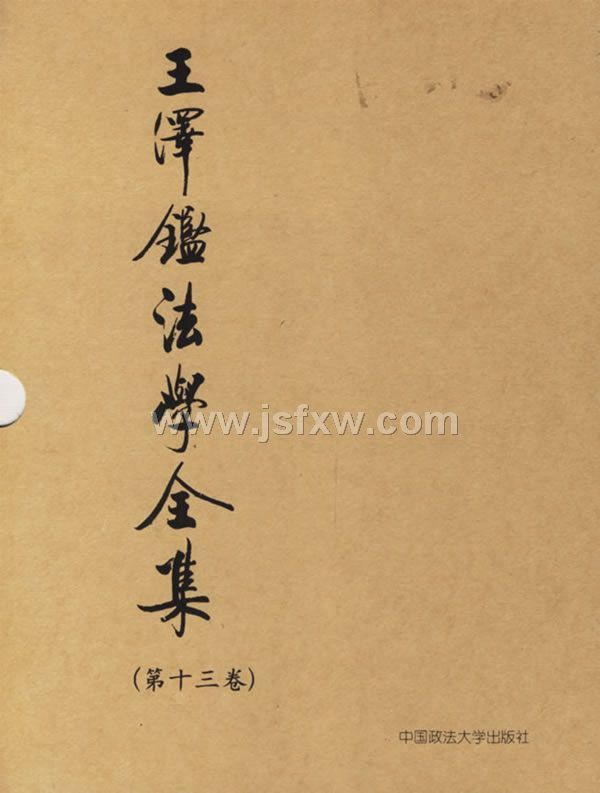 王澤鑑法學全集
(第十三卷)
www.jsfxw.com
中国政法大学出版社